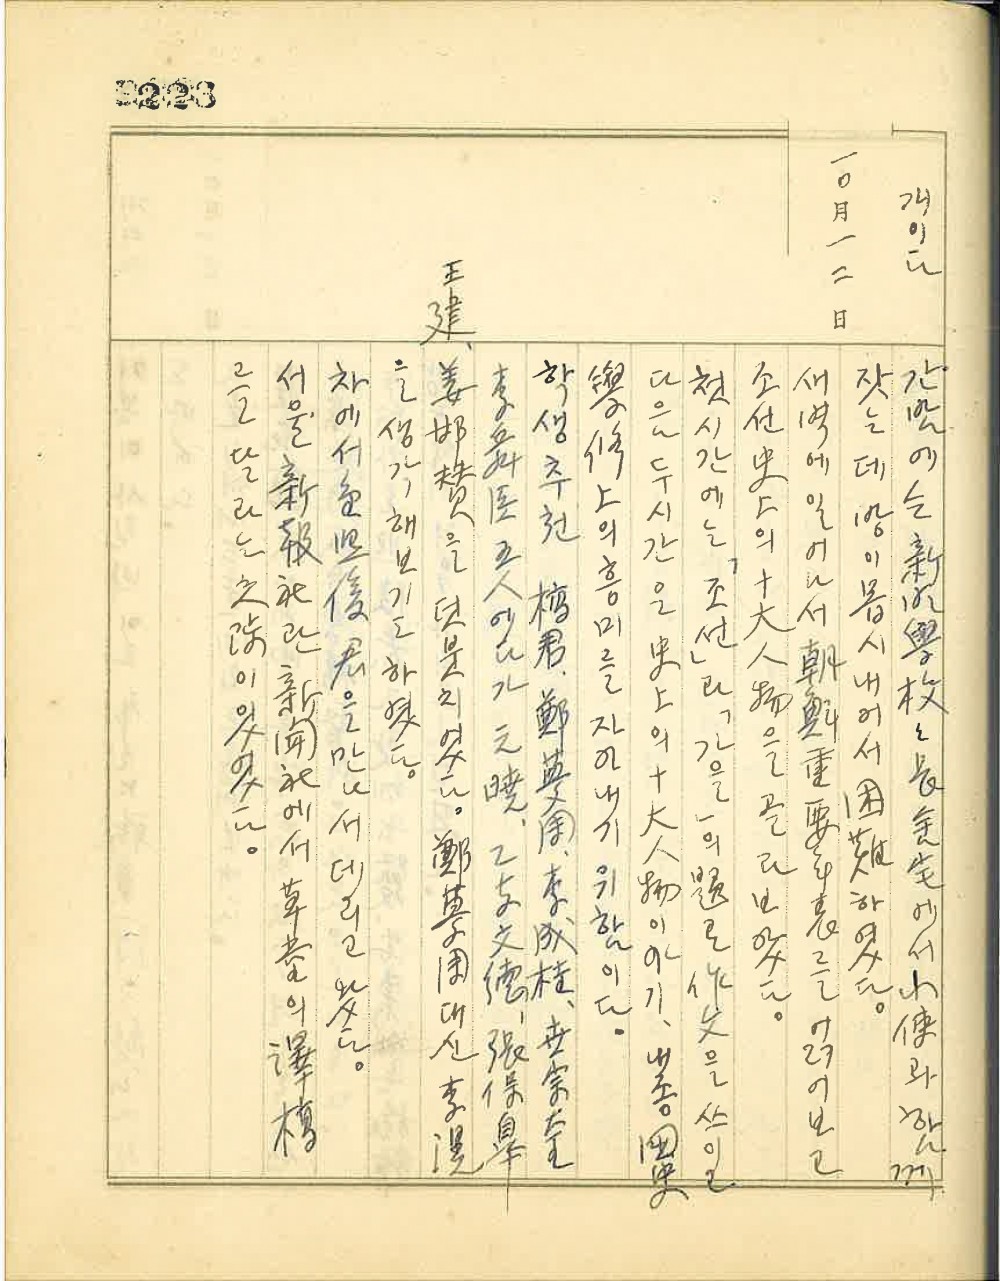 3223
개이다
一〇月一二日
간밤에는 新明學校 長 金宅에서 小使과 함께
잣는데 방이 몹시 내어서 困難하였다。
새벽에 일어나서 朝鮮重要年表를 어려어보고
조선史上의 十大人物을 골라보았다。
첫시간에는 「조선」과 「가을」의 題로 作文을 쓰이고
다음 두시간은 史上의 十大人物이야기、내종 國史
學修上의 흥미를 자아내기 위함이다。
학생추천 檀君、鄭夢周、李成桂、世宗大王
李舜臣 五人에다가 元曉、乙支文德、張保皐
王建、姜邯贊을 덧붓치었다。鄭夢周 대신 李滉
을 생각해보기도 하였다。
차에서 金熙俊君을 만나서 데리고 왔다。
서울新報社란 新聞社에서 草堂의 譯稿
를 달라는 交涉이 있었다。